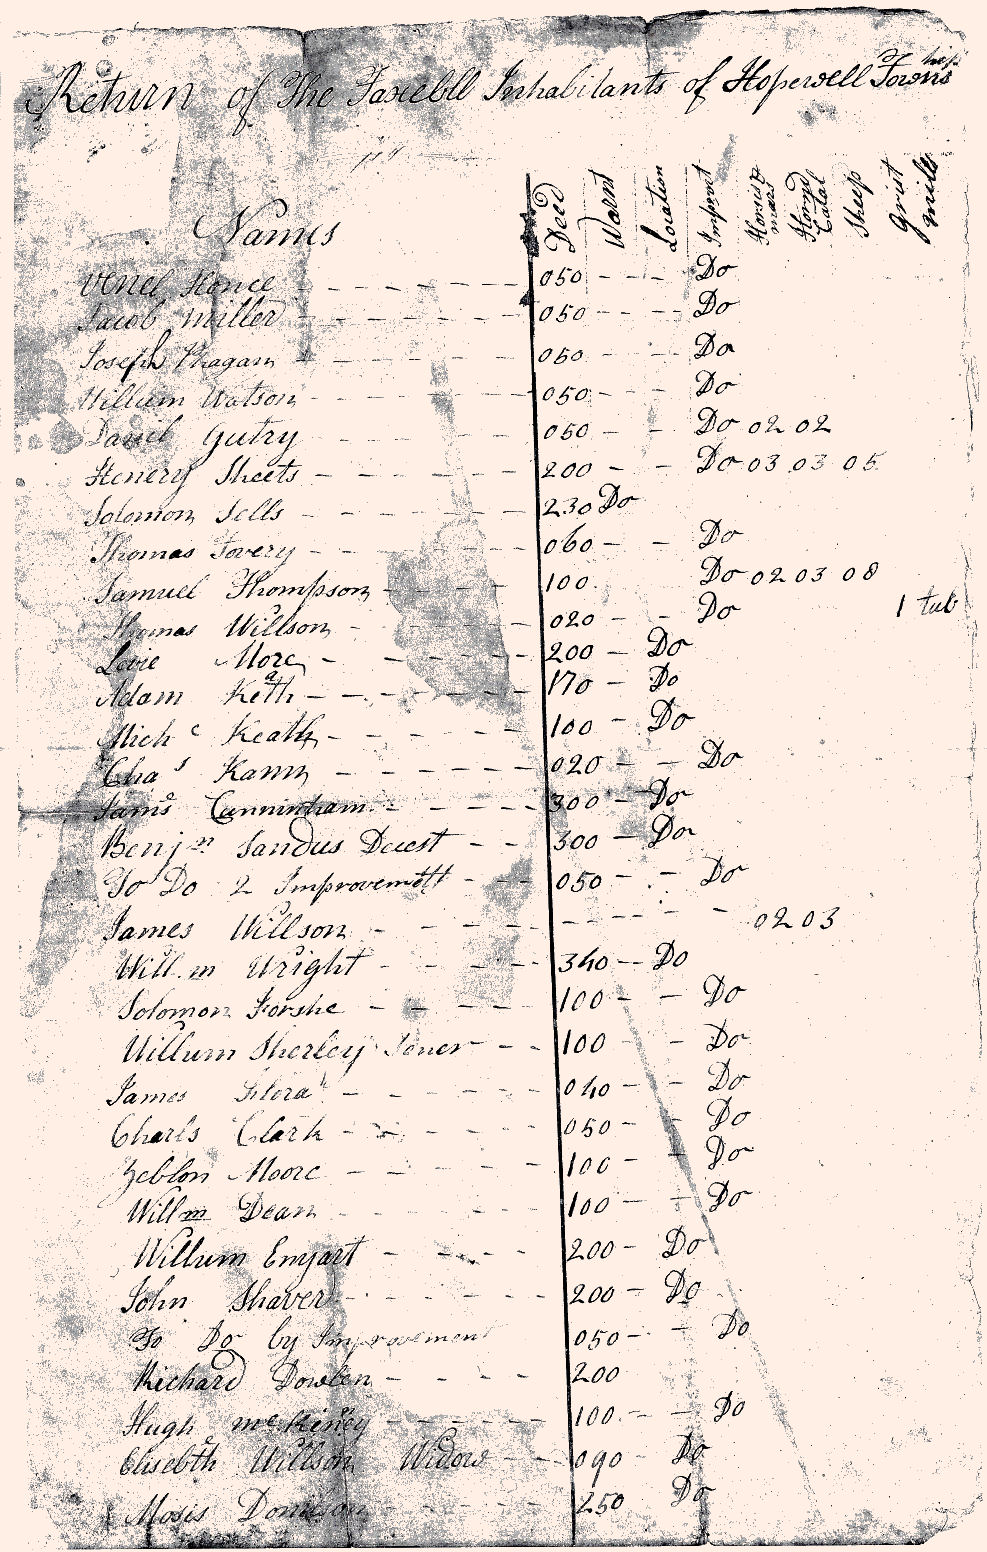 Return of The Taxiebll Inhabitants of Hopewell Township
Names Deed Warnt Location Improvt Horses & mars Horned Catal Sheep Grist mills
Hence 050 Do
Jacob Miller 050 Do
Joseph Phagan 050 Do
Willium Watson 050 Do
David Gutry 050 Do 02 02
Henery Sheets 200 Do 03 03 05
Solomon Sells 230 Do
Thomas Tovery 060 Do
Samuel Thompson 100 Do 02 03 08
Thomas Willson 020 Do 1 tub
Levie More 200 Do
Adam Keath 170 Do
Mich c Keath 100 Do
Cha s Kann 020 Do
Jams Cunninham 300 Do
Benj n Sandus Decest 300 Do
To Do 2 Improvemtt 050 Do
James Willson 02 03
Will m Wright 340 Do
Solomon Forshe 100 Do
Willium Sherley Sener 100 Do
James Flora 040 Do
Charls Clark 050 Do
Zeblon Moore 100 Do
Will m Dean 100 Do
Willium Enyart 200 Do
John Shaver 200 Do
To Do by Improvement 050 Do
Richard Dowlen 200
Hugh mc Kiney 100 Do
Elisebth Willson Widow 090 Do
Mosis Donilson 250 Do